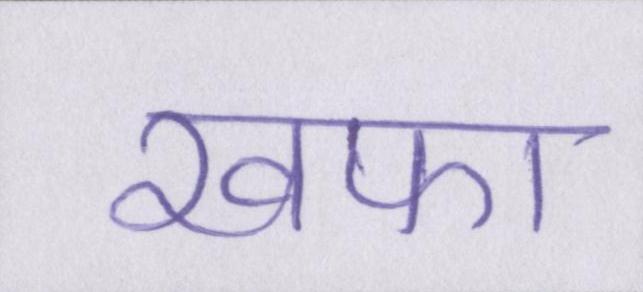 खफा